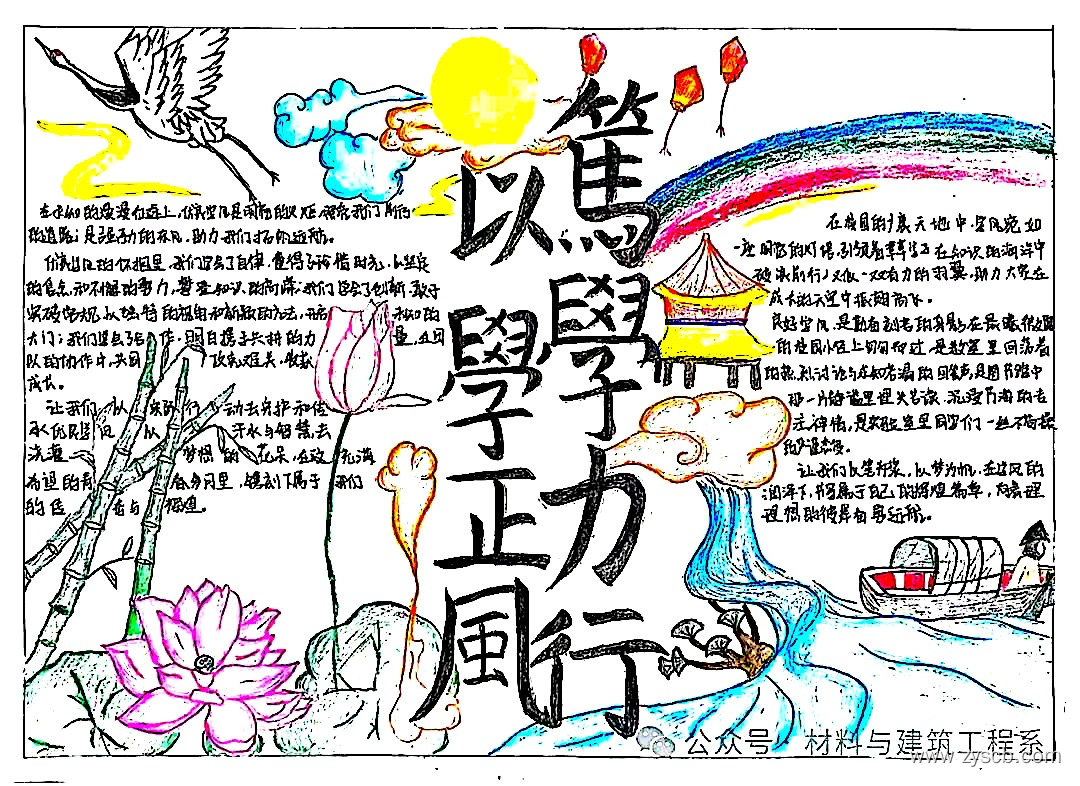 篤學力行
以學正風
在求知的漫漫征途上，优良学风是闪亮的火炬，照亮我们前行
的道路；是强劲的东风，助力我们扬帆远航。
优良学风的怀抱里，我们学会了自律，懂得了珍惜时光，以坚定
的信念和不懈的努力，攀登知识的高峰；我们学会了创新，敢于
突破常规，以独特的视角和新颖的方法，开 知识的
大门；我们学会了 作，明白携手共进的力量，在团
队的协作中，共同攻克难关，收获
成长。
让我们以实际行动去守护和传
承优良学风，以汗水与智慧去
浇灌 梦想的花朵，在这充满
希望的 里，镌刻下属于我们
的 与辉煌。
在校园的广袤天地中，学风宛如
一座明亮的灯塔，引领着莘莘学子在知识的海洋中
破浪前行；又似一双有力的羽翼，助力大家在
成长的天空中振翅高飞。
良好学风，是勤奋刻苦的身影在晨曦微露
的校园小径上匆匆而过，是教室里回荡着
的热烈讨论与求知若渴的回答声，是图书馆中
那一片静谧里埋头苦读、沉浸书海的专
注神情，是实验室里同学们一丝不苟探
的严谨态度。
让我们以笔为桨，以梦为帆，在学风的
润泽下，书写属于自己的辉煌篇章，向着理
想的彼岸奋勇远航。
公众号·材料与建筑工程系
www.zyscb.com